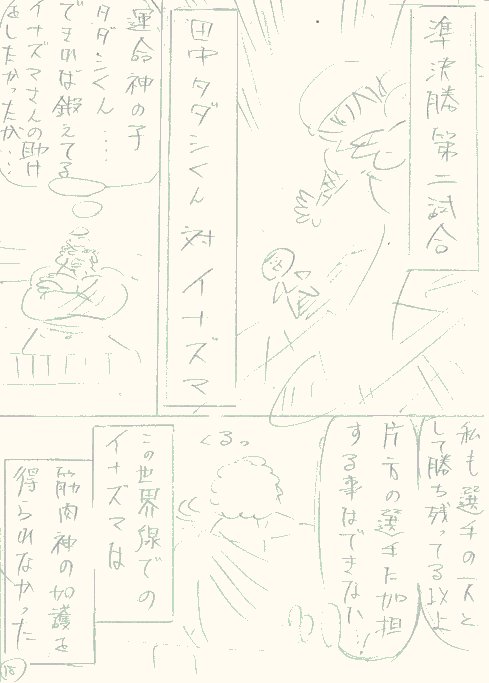 準決勝第二試合
田中タダシくん 対 イナズマン
運命神の子
タダシくん…
できれば鍛えてる
イナズマさんの助け
をしたかったが…
私も選手の一人と
して勝ち残ってる以上
片方の選手に加担
する事はできない!
くるっ
この世界線での
イナズマは
筋肉神の加護を
得られなかった